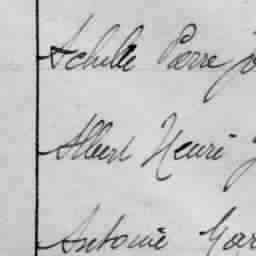 Achille Pierre
Albert Henri
Antonie